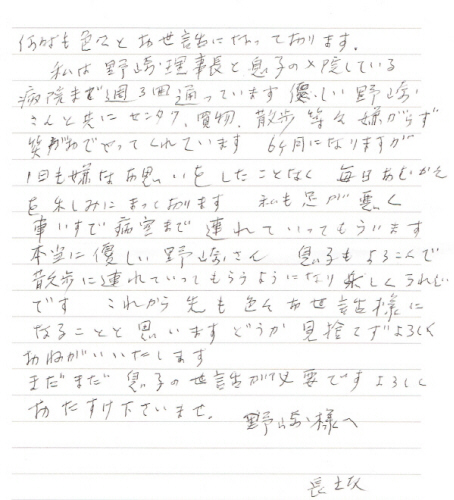 何時も色々とお世話になっております。
私は野崎理事長と息子の入院している
病院まで週3回通っています 優しい野崎
さんと共にセンタク、買物、散歩等々嫌がらず
笑がおでやってくれています 6ヶ月になりますが
1日も嫌なお思いをしたことなく 毎日おむかえ
を楽しみにまっております 私も足が悪く
車いすで病室まで連れていってもらいます
本当に優しい野崎さん 息子もよろこんで
散歩に連れていってもらうようになり楽しくうれしい
です これから先も色々お世話様に
なることと思いますどうか見捨てずよろしく
おねがいいたします
まだまだ息子の世話が必要ですよろしく
おたすけ下さいませ。 野崎様へ
長